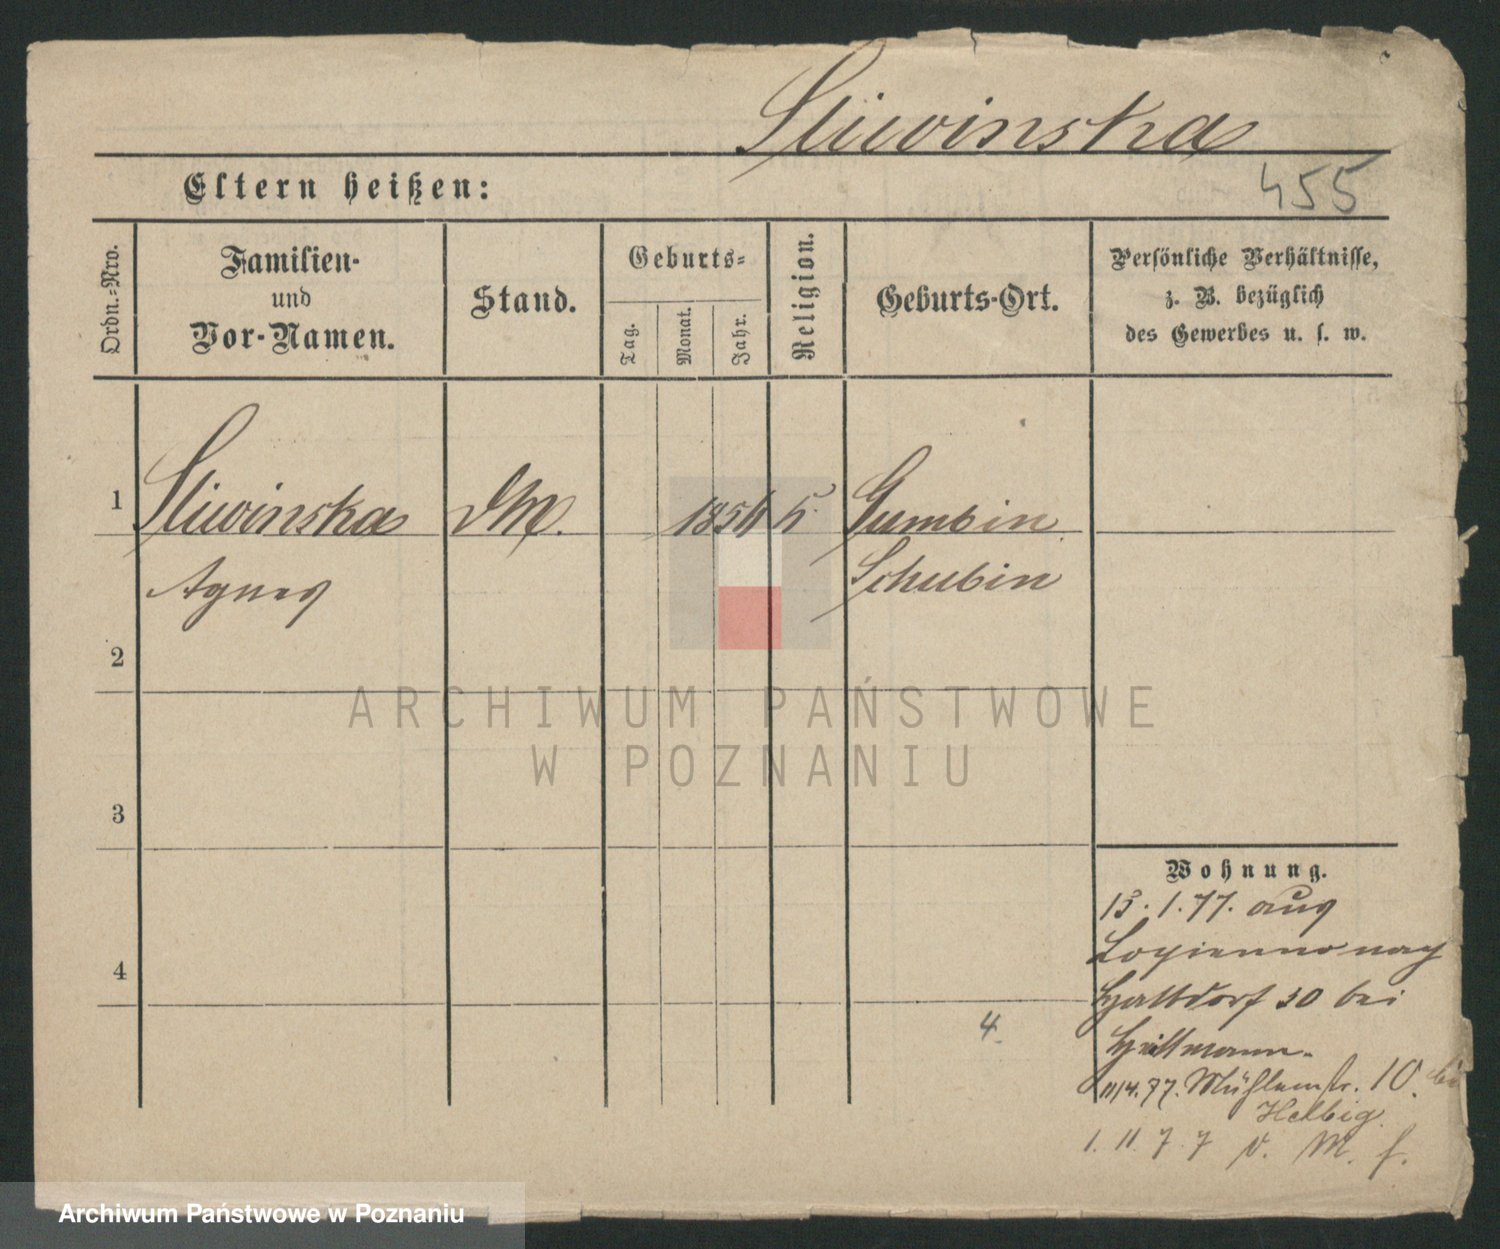 Sliwinska
Eltern heißen:
455
Ordn.-Nro.
Familien-
und
Vor-Namen.
Stand.
Geburts-
Tag.
Monat.
Jahr.
Religion.
Geburts-Ort.
Persönliche Verhältnisse,
z. B. bezüglich
des Gewerbes u. s. w.
1
Sliwinska
DM.
1854
k.
Gumbin
Agnes
Schubin
2
3
4
Wohnung.
13. 1. 77. aus
Lopienno nach
Halldorf 30 bei
4
11/4. 77. Mühlenstr. 10. bei
Helbig.
1. 11. 77 v. M. f.
ARCHIWUM PAŃSTWOWE
W POZNANIU
Archiwum Państwowe w Poznaniu